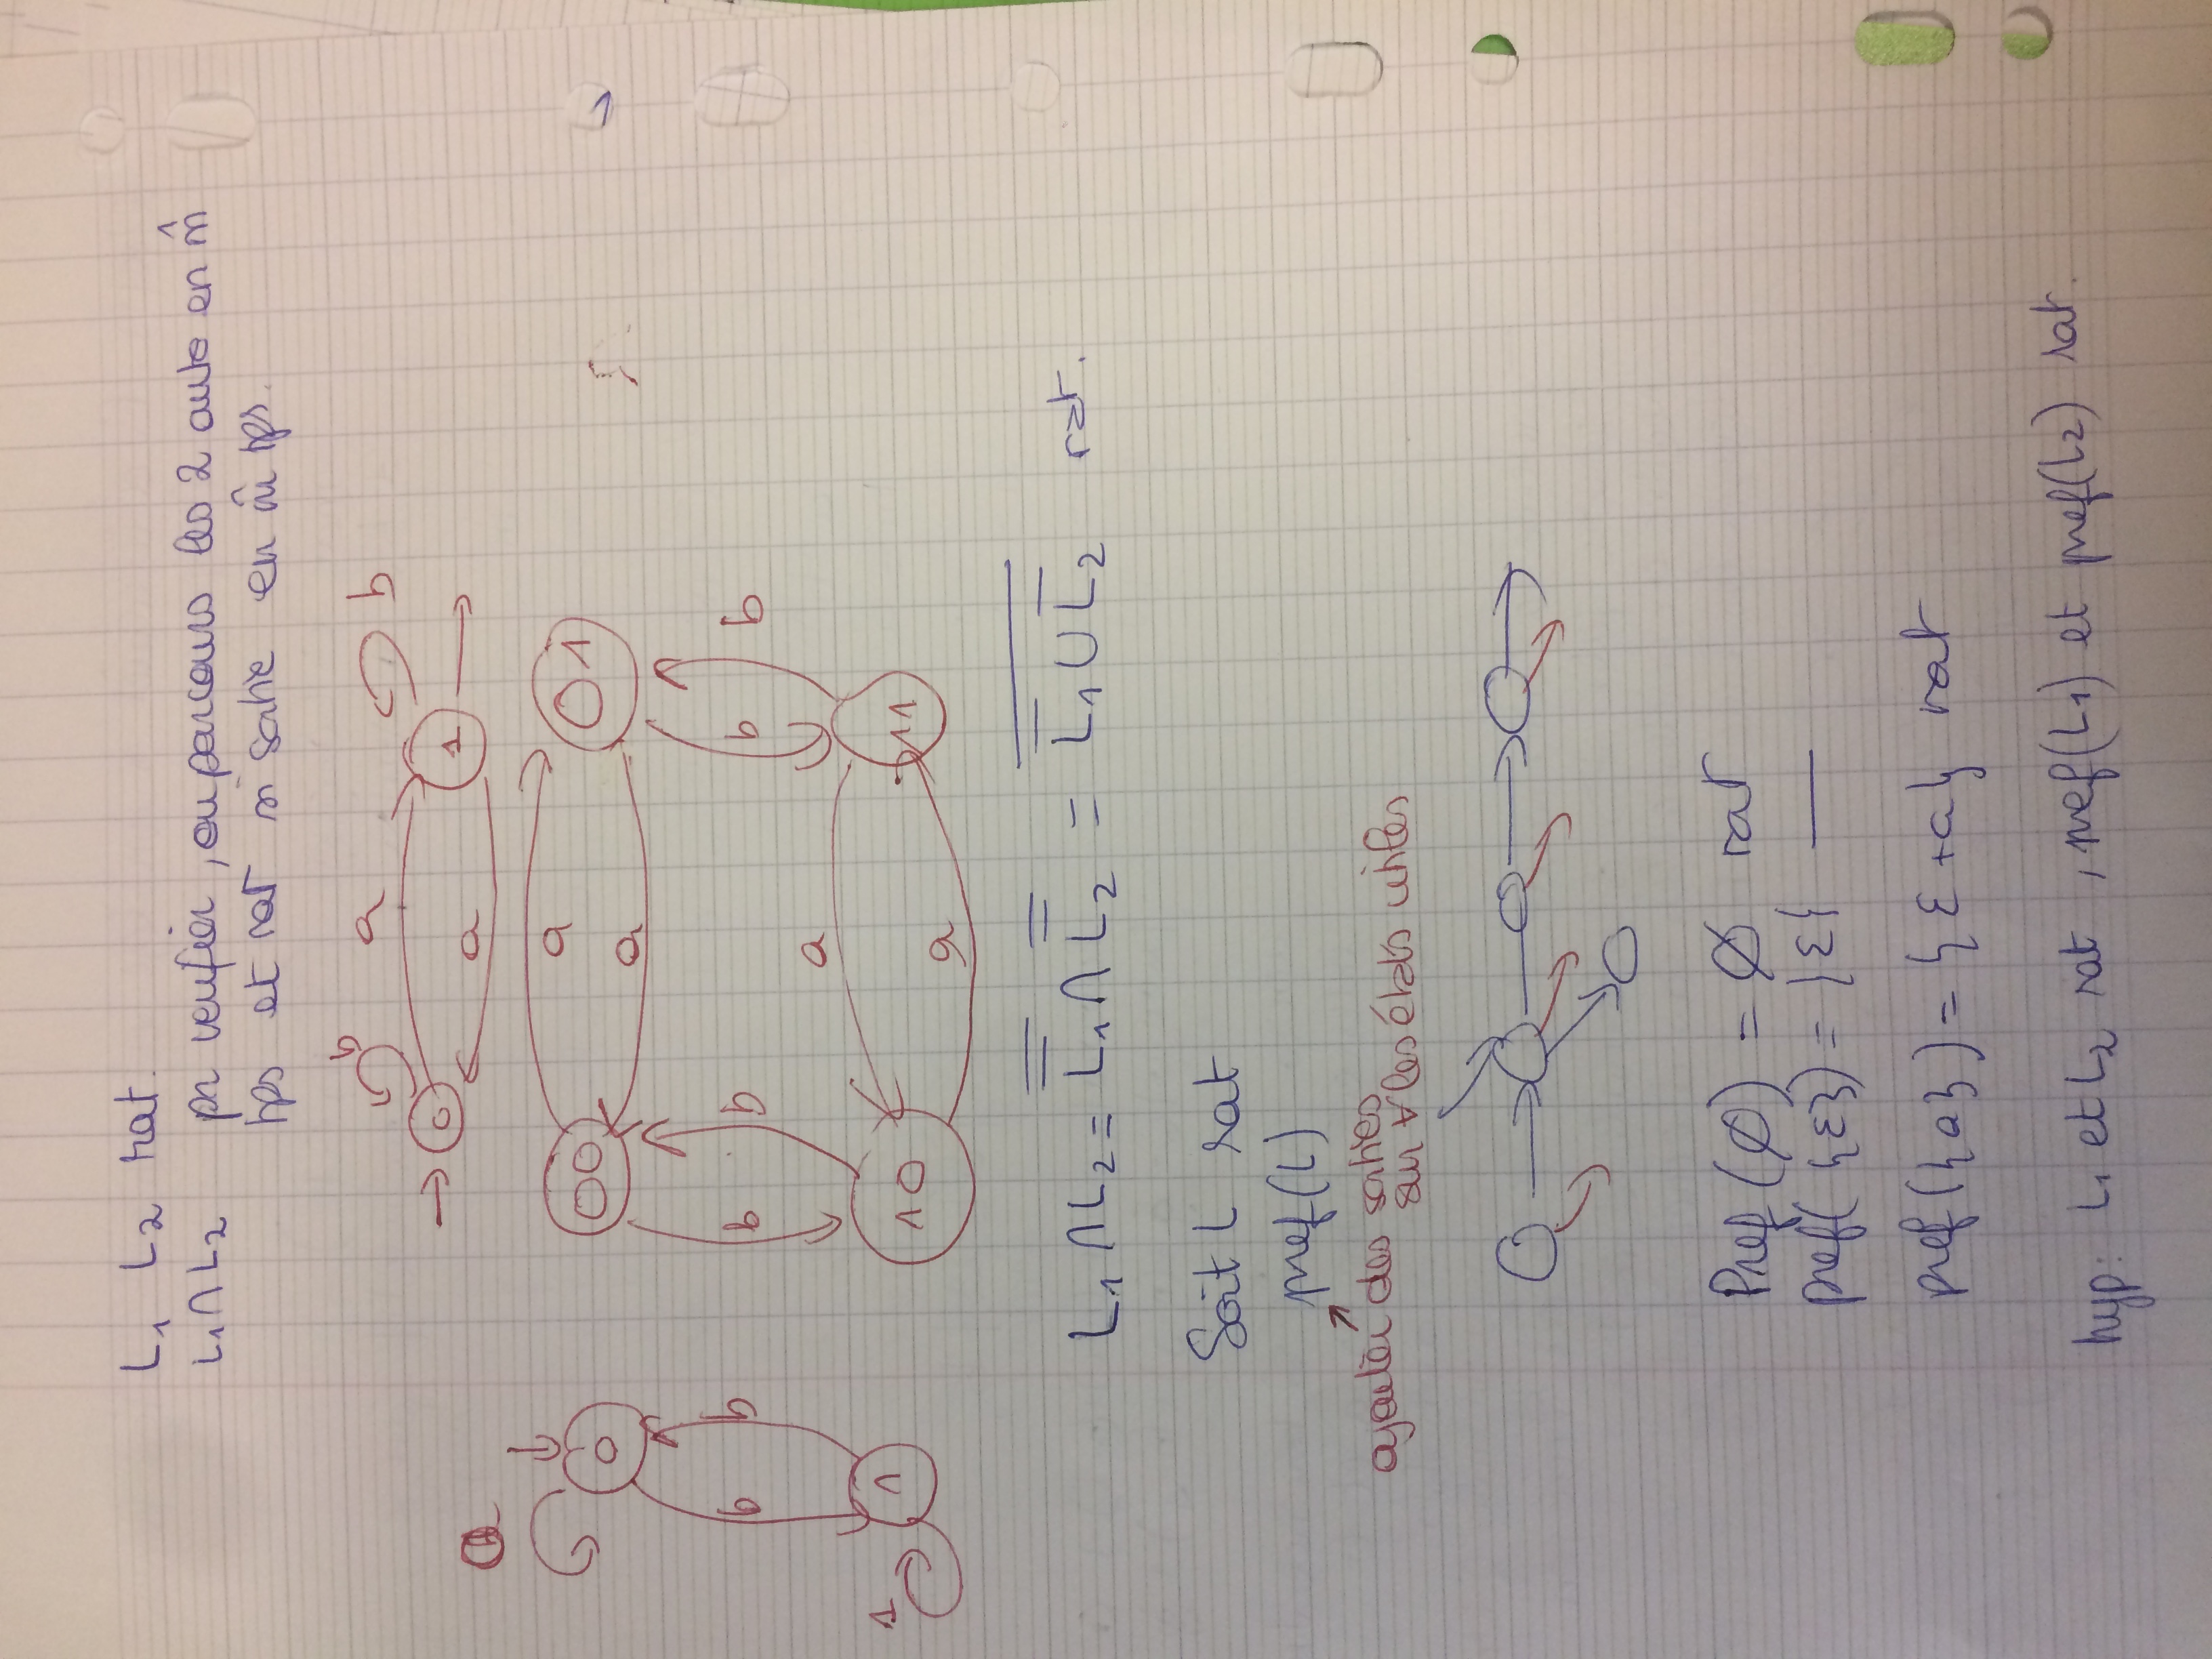 L₁ L₂ rat.
L₁∩L₂ pr verifier, on parcours les 2 auto en m̂
tps et rat si sortie en m̂ tps.
b a b
0 1
a
a
0 00 a 01
a
b b b b b b
a
1 1 10 11
a
L₁∩L₂ = L̿₁ ∩ L̿₂ = \overline{L̅₁ ∪ L̅₂} rat.
Soit L rat
pref(L)
ajouter des sorties
sur ∀ les états utiles
Pref(∅) = ∅ rat
pref({ε}) = {ε} —
pref({a}) = {ε + a} rat
hyp: L₁ et L₂ rat, pref(L₁) et pref(L₂) rat.